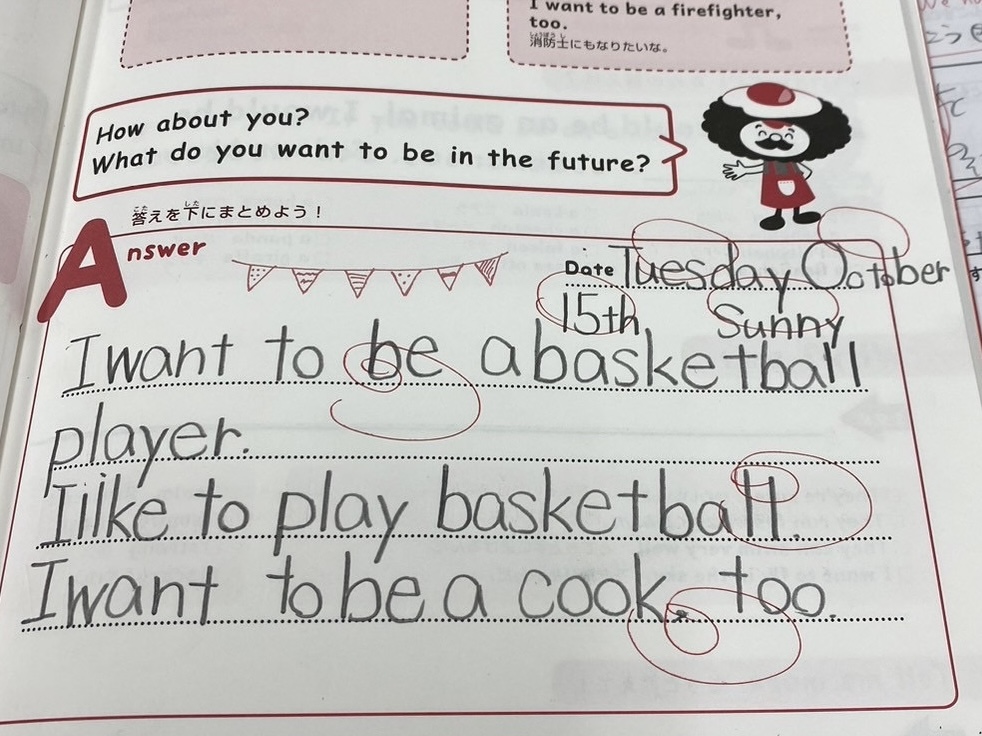 I want to be a firefighter,
too.
消防士にもなりたいな。
How about you?
What do you want to be in the future?
答えを下にまとめよう！
Answer
Date Tuesday October
15th Sunny
I want to be a basketball
player.
I like to play basketball.
I want to be a cook, too.